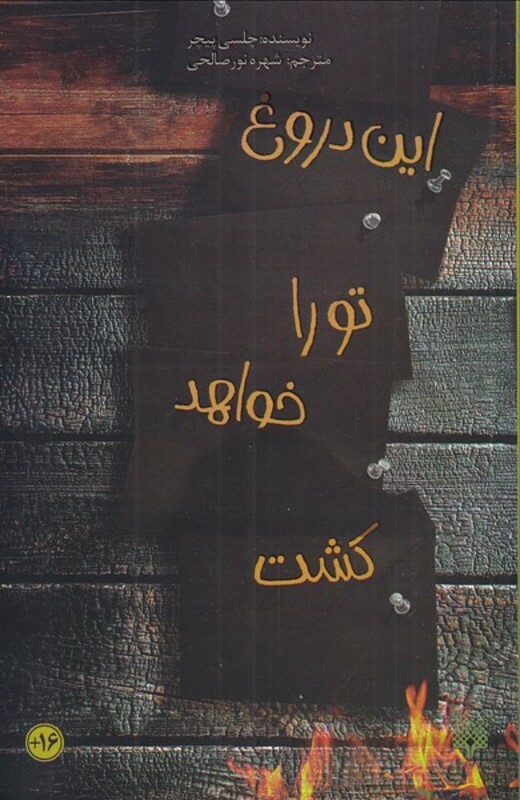 نویسنده: چلسی پیچر
مترجم: شهره نورصالحی
این دروغ
تو را
خواهد
کشت
+۱۶